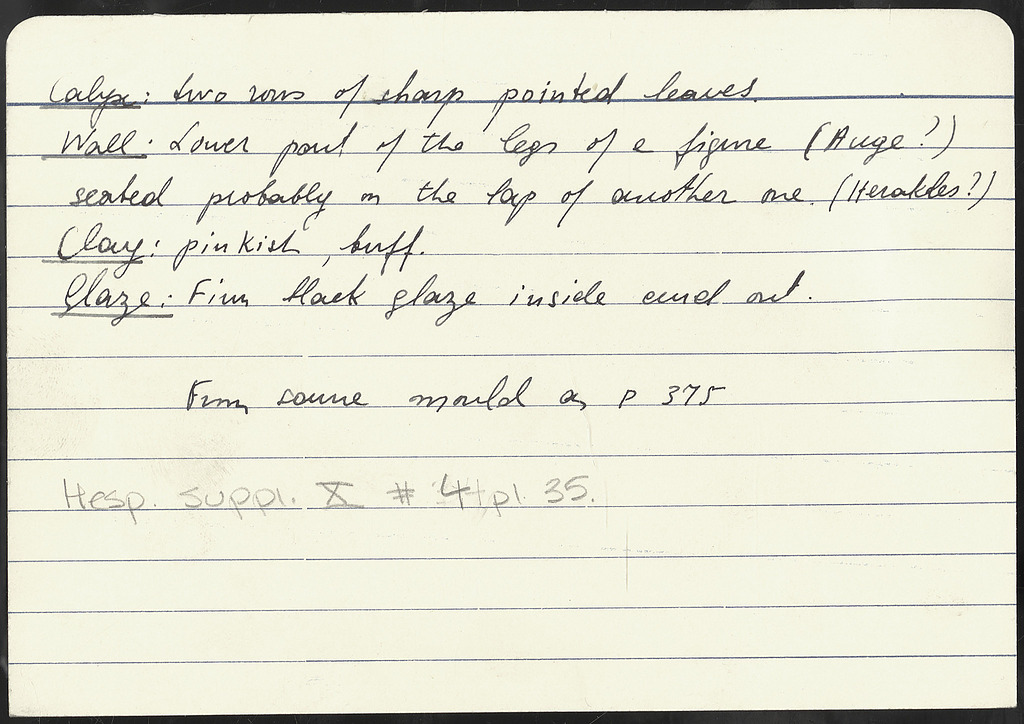 Calyx: two rows of sharp pointed leaves.
Wall: Lower part of the legs of a figure (Auge?)
seated probably on the lap of another one. (Herakles?)
Clay: pinkish, buff.
Glaze: Firm black glaze inside and out.
From same mould as P 375
Hesp. Suppl. X # 4 pl. 35.